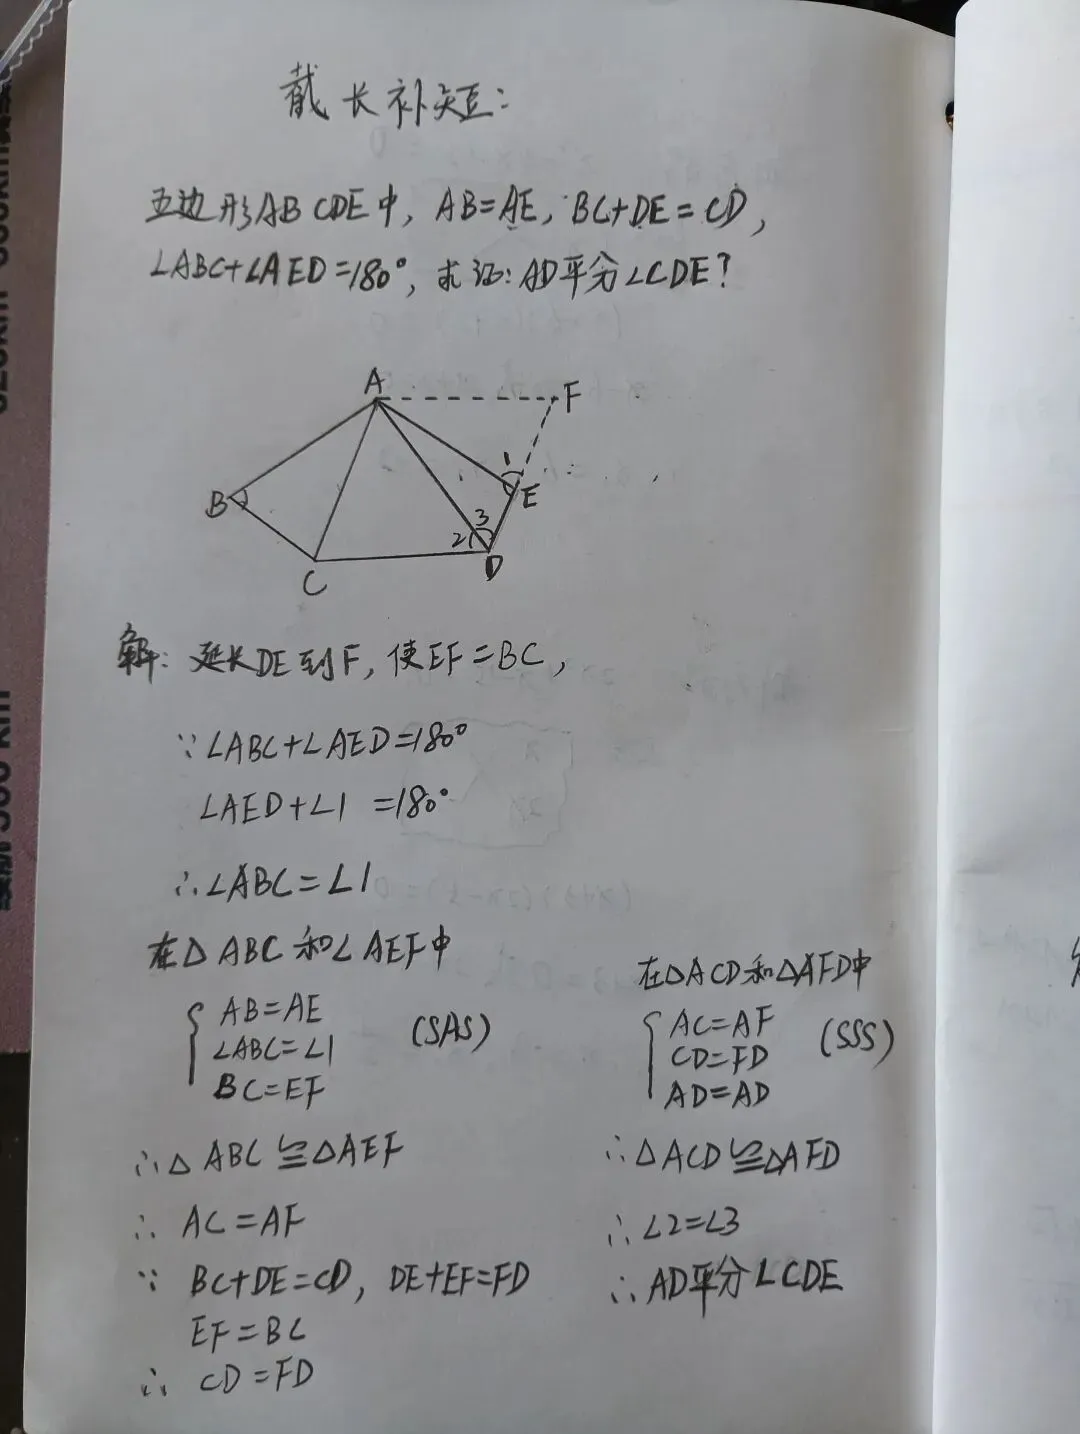 截长补短:
五边形ABCDE中, AB=AE, BC+DE=CD,
∠ABC+∠AED=180°, 求证: AD平分∠CDE?
A
F
B
1
E
3
2
C
D
解: 延长DE到F, 使EF=BC,
∵∠ABC+∠AED=180°
∠AED+∠1=180°
∴∠ABC=∠1
在△ABC和∠AEF中
AB=AE
∠ABC=∠1 (SAS)
BC=EF
∴△ABC≌△AEF
∴ AC=AF
∵ BC+DE=CD, DE+EF=FD
EF=BC
∴ CD=FD
在△ACD和△AFD中
AC=AF
CD=FD (SSS)
AD=AD
∴△ACD≌△AFD
∴∠2=∠3
∴AD平分∠CDE